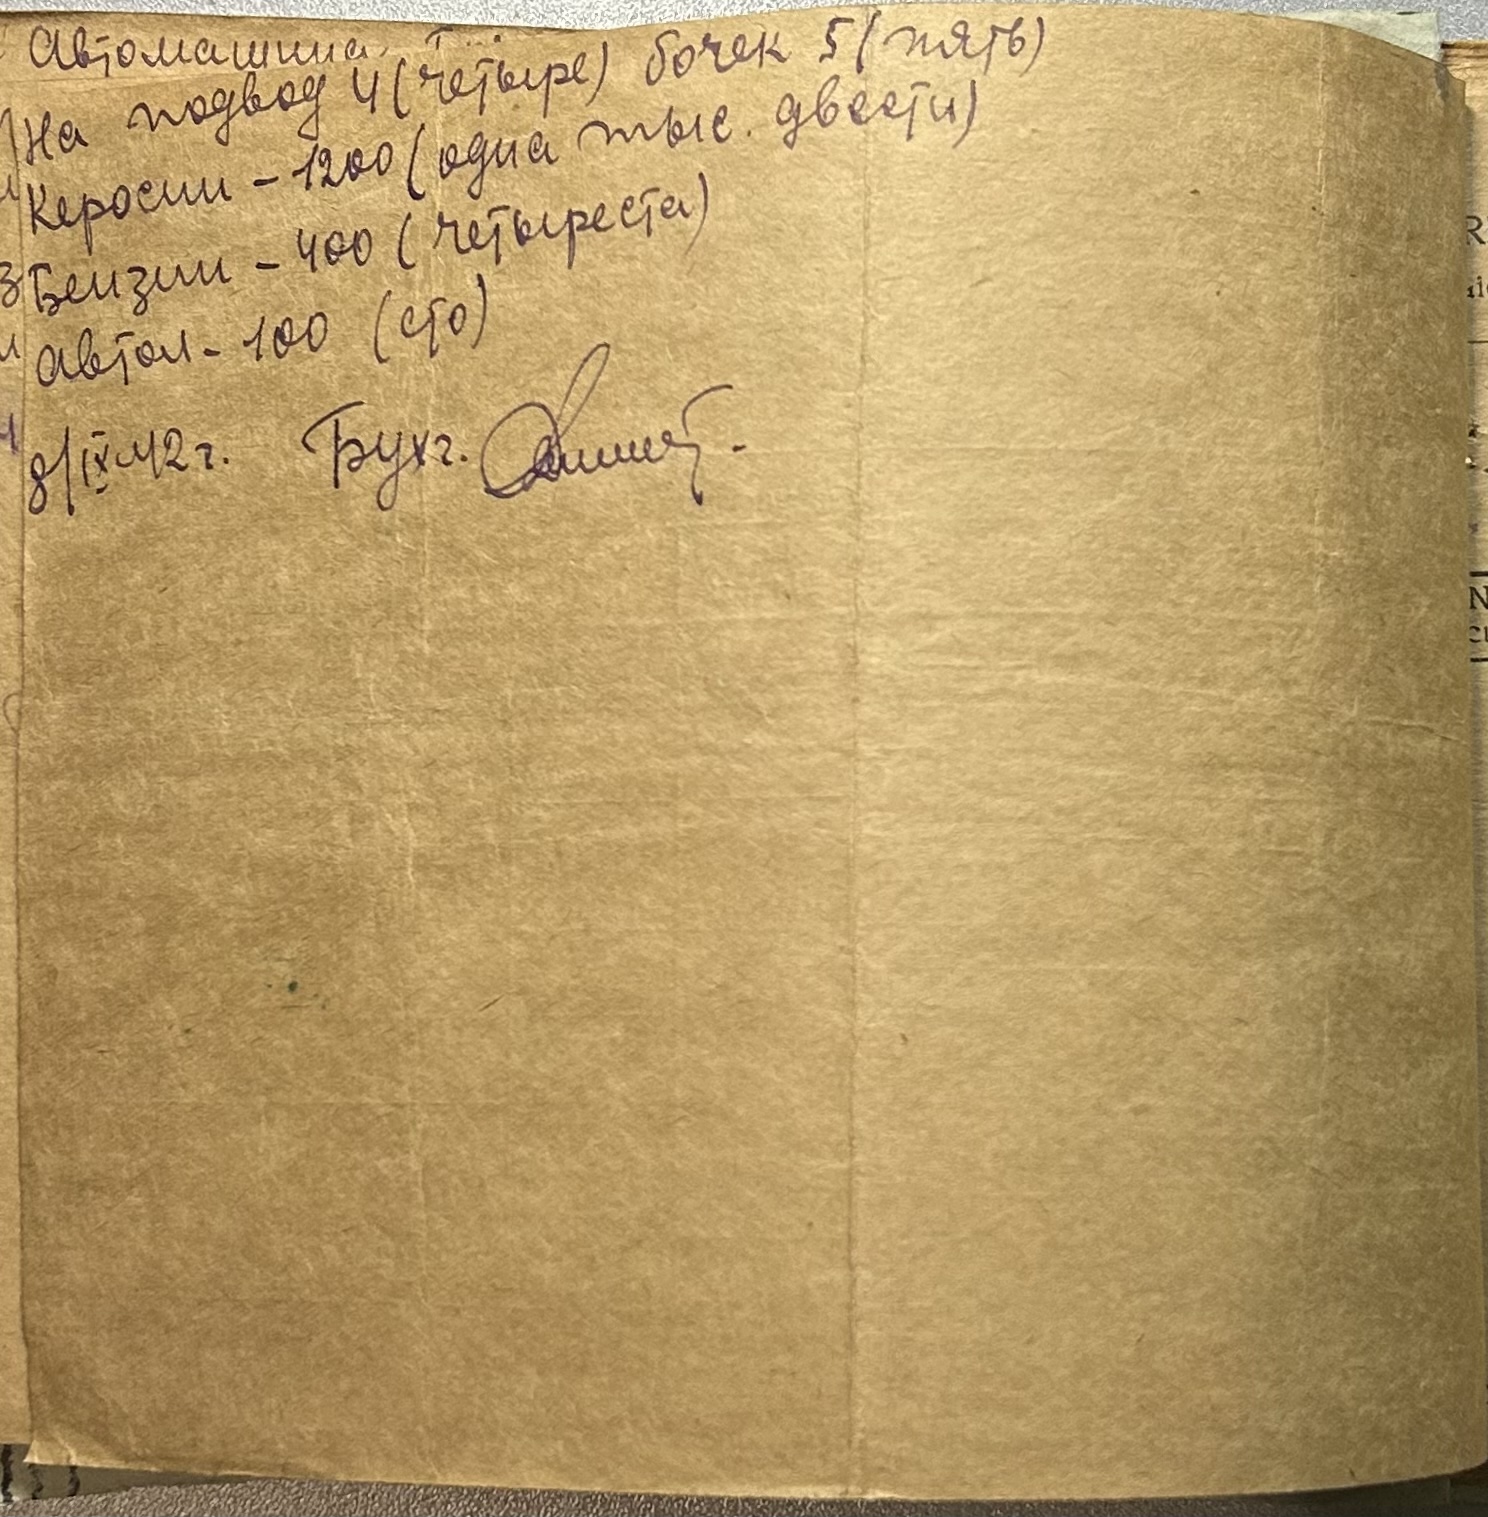 Автомашина
На подвод 4 (четыре) бочек 5 (пять)
Керосин - 1200 (одна тыс. двести)
Бензин - 400 (четыреста)
Автол - 100 (сто)
8/IX 42 г. Бухг.